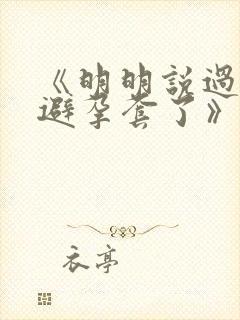 《明明說過
避孕套了》
衣亭